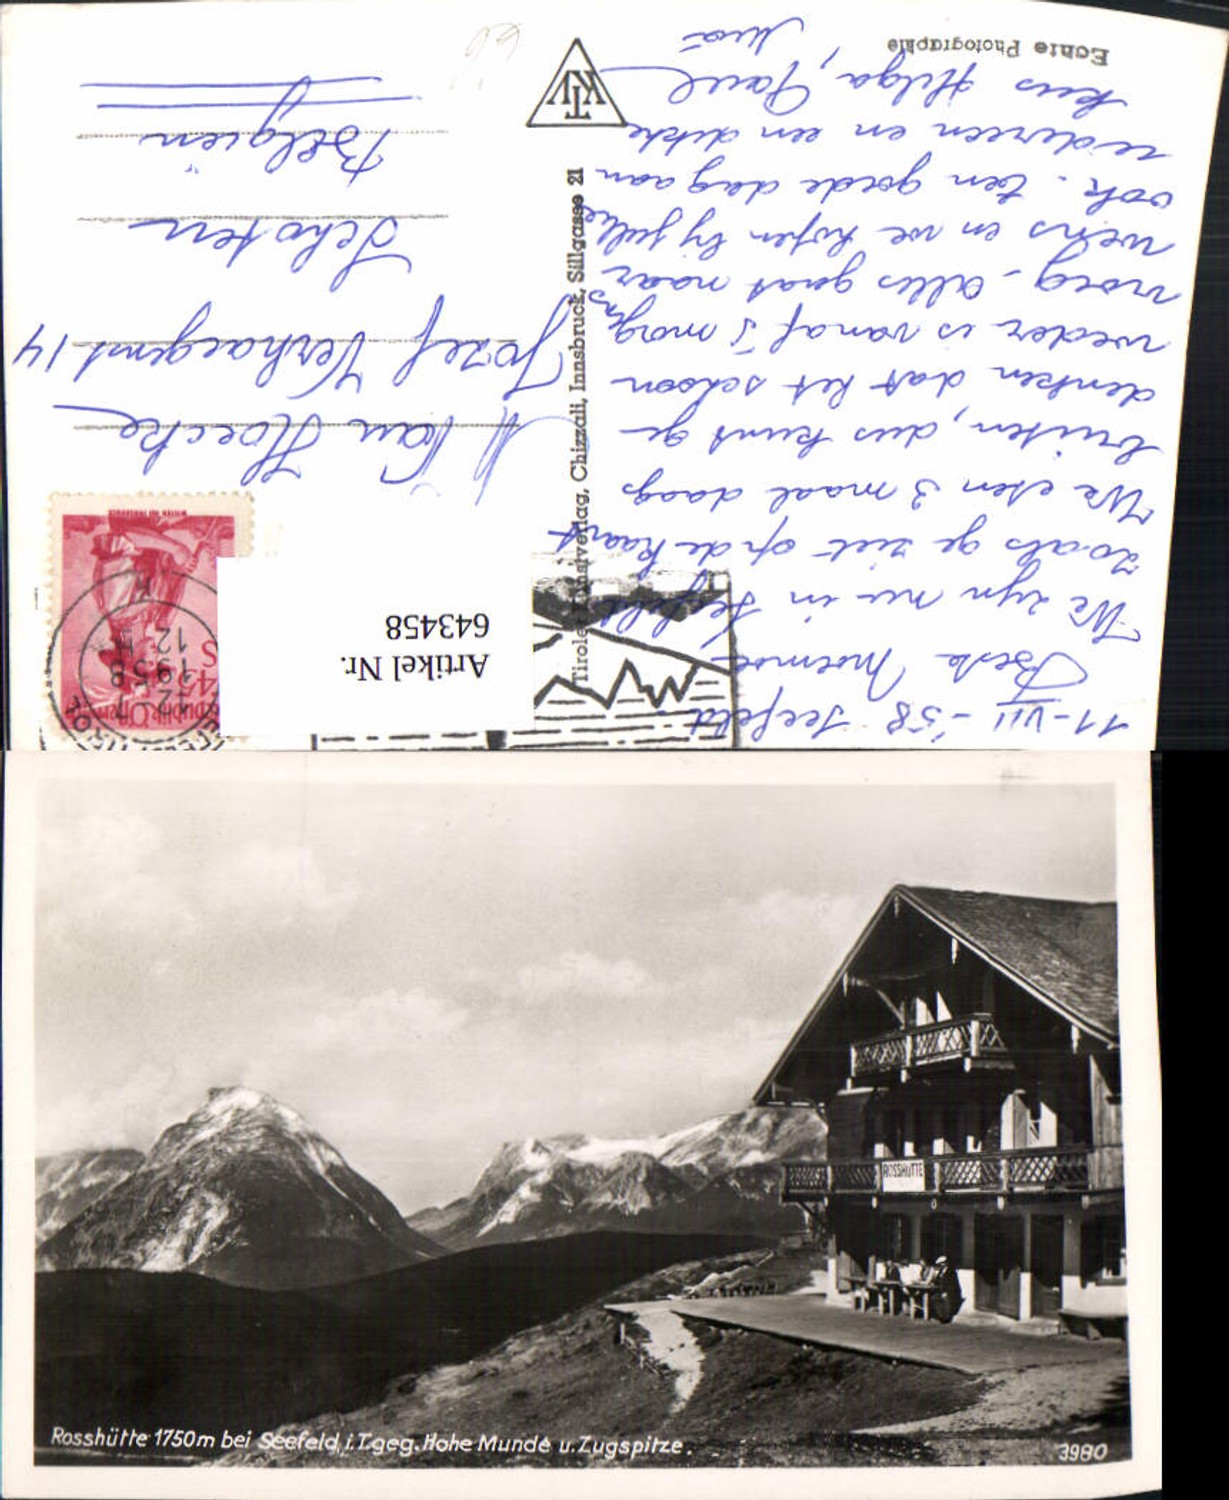 11-VII-58 Seefeld
Beste Moemoe
We zyn nu in Seefeld
zoals ge ziet op de kaart
We eten 3 maal daags
buiten, dus kunt ge
denken dat het schoon
weder is vanaf 's morgens
vroeg. Alles gaat naar
wens en we hopen by jullie
ook. Een goede dag aan
iedereen en een dikke
kus Helga, Paul,
Echte Photographie
TKV
Tiroler Kunstverlag, Chizzali, Innsbruck, Sillgasse 21
Artikel Nr.
643458
12. 7
1958
12
M Van Hoecke
Jozef Verhaegent 14
Schoten
Belgiën
ROSSHÜTTE
Rosshütte 1750m bei Seefeld, i.T. geg. Hohe Munde u. Zugspitze.
3980